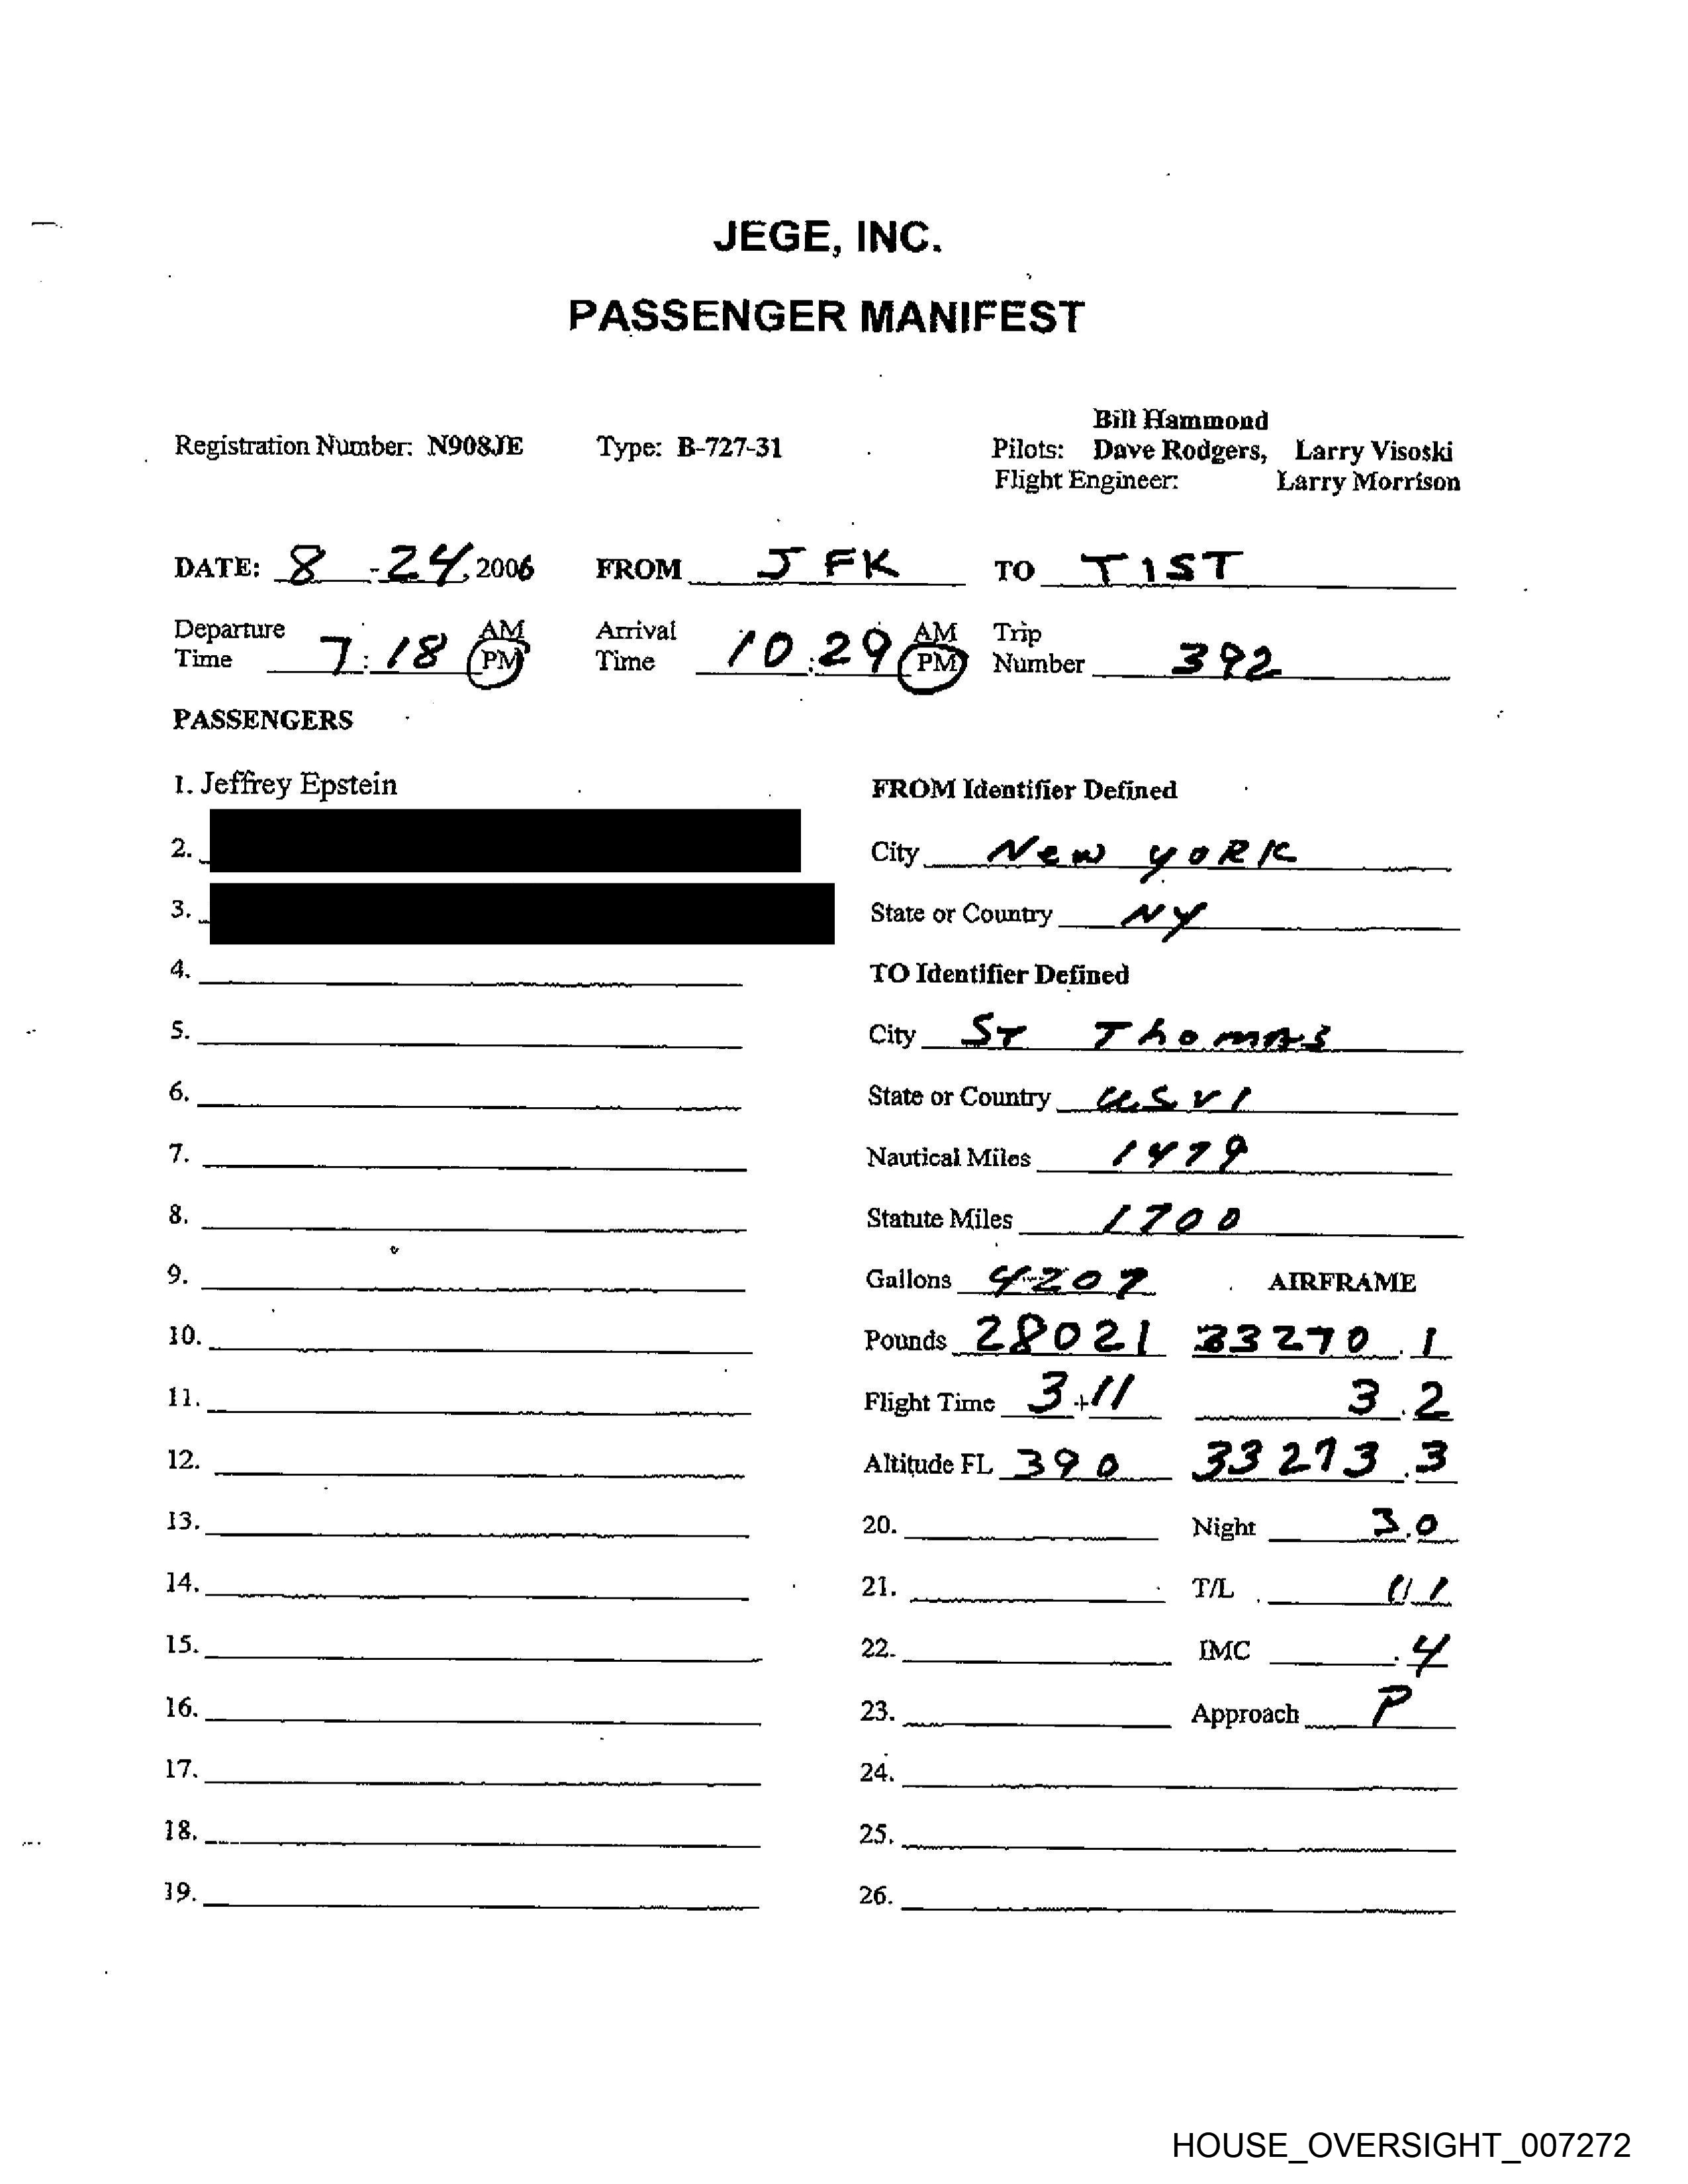 JEGE, INC.
PASSENGER MANIFEST
Bill Hammond
Registration Number: N908JE Type: B-727-31 Pilots: Dave Rodgers, Larry Visoski
Flight Engineer: Larry Morrison
DATE: 8 - 24, 2006 FROM JFK TO TIST
Departure Time 7:18 AM PM Arrival Time 10:29 AM PM Trip Number 392
PASSENGERS
1. Jeffrey Epstein
FROM Identifier Defined
2. City New YORK
3. State or Country NY
4. TO Identifier Defined
5. City ST ThomAS
6. State or Country USVI
7. Nautical Miles 1479
8. Statute Miles 1700
9. Gallons 4207 AIRFRAME
10. Pounds 28021 33270.1
11. Flight Time 3+11 3.2
12. Altitude FL 390 33273.3
13. 20. Night 3.0
14. 21. T/L 1/1
15. 22. IMC .4
16. 23. Approach P
17. 24.
18. 25.
19. 26.
HOUSE_OVERSIGHT_007272